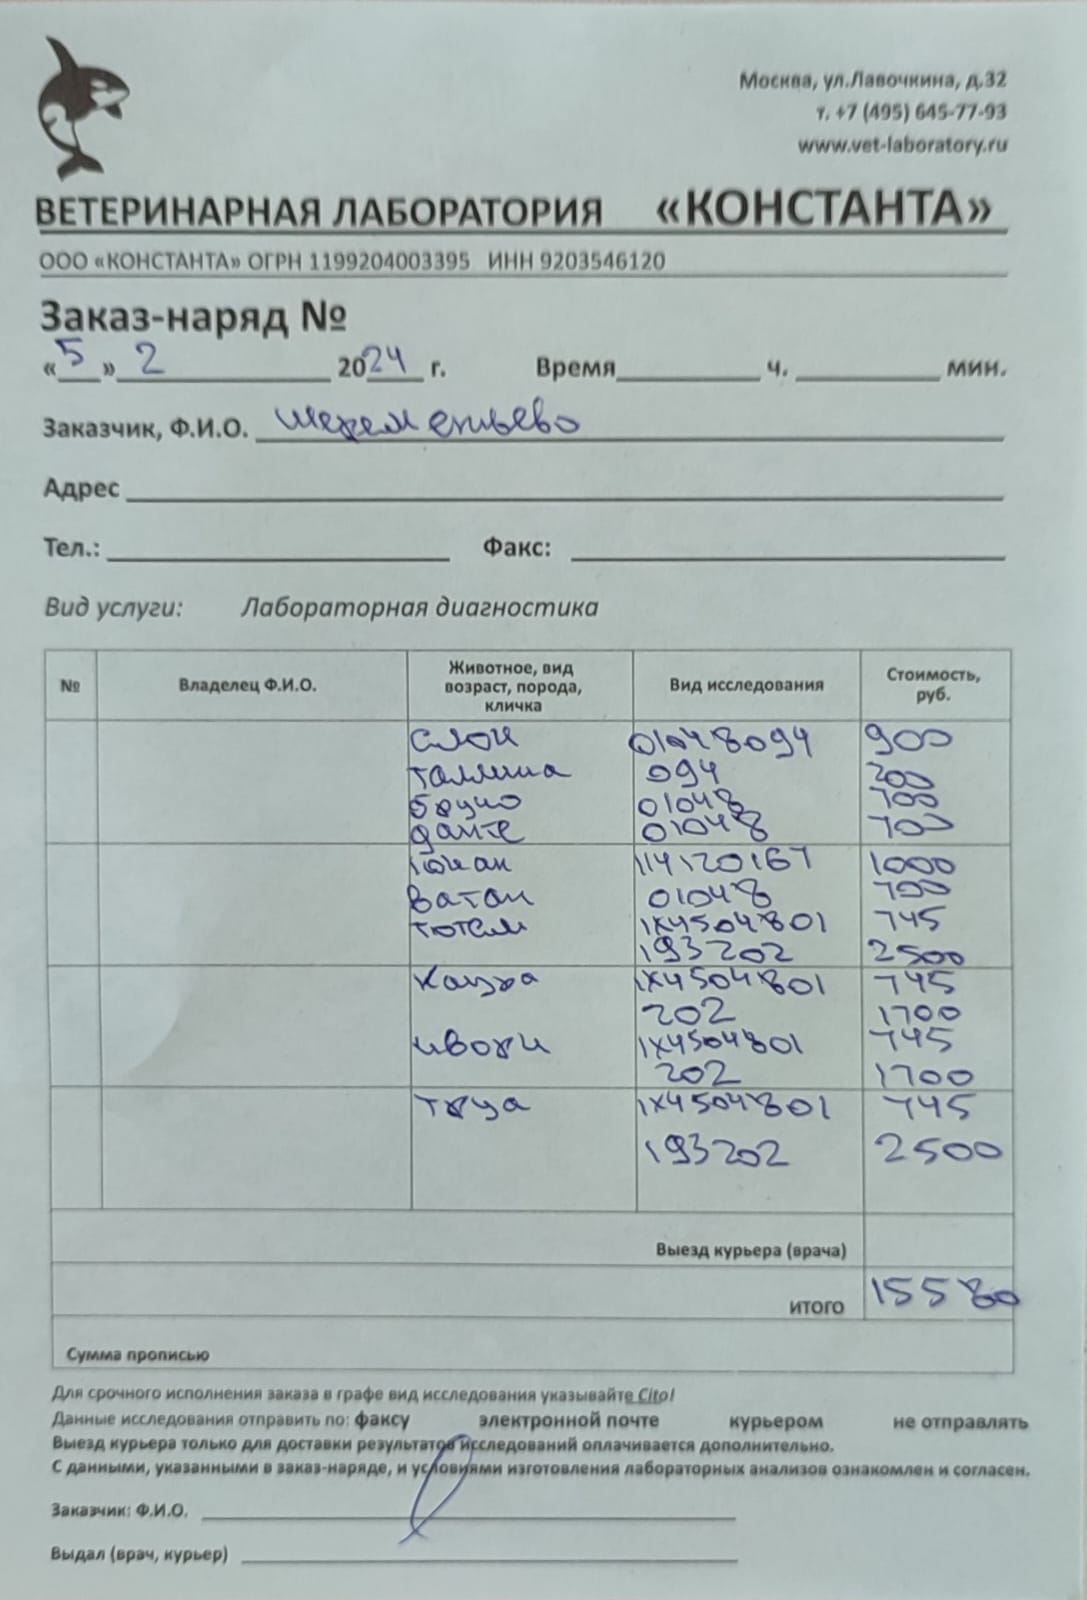 Москва, ул.Лавочкина, д.32
т. +7 (495) 645-77-93
www.vet-laboratory.ru
ВЕТЕРИНАРНАЯ ЛАБОРАТОРИЯ «КОНСТАНТА»
ООО «КОНСТАНТА» ОГРН 1199204003395 ИНН 9203546120
Заказ-наряд №
«5» 2 2024 г. Время ч. мин.
Заказчик, Ф.И.О. Шереметьево
Адрес
Тел.: Факс:
Вид услуги: Лабораторная диагностика
№ Владелец Ф.И.О. Животное, вид возраст, порода, кличка Вид исследования Стоимость, руб.
слои 01048094 900
094 200
бруно 01048 700
данте 01048 700
114120167 1000
ватан 01048 700
тотем 1X4504801 745
193202 2500
1X4504801 745
202 1700
ивоки 1X4504801 745
202 1700
1X4504801 745
193202 2500
Выезд курьера (врача)
ИТОГО 15580
Сумма прописью
Для срочного исполнения заказа в графе вид исследования указывайте Cito!
Данные исследования отправить по: факсу электронной почте курьером не отправлять
Выезд курьера только для доставки результатов исследований оплачивается дополнительно.
С данными, указанными в заказ-наряде, и условиями изготовления лабораторных анализов ознакомлен и согласен.
Заказчик: Ф.И.О.
Выдал (врач, курьер)